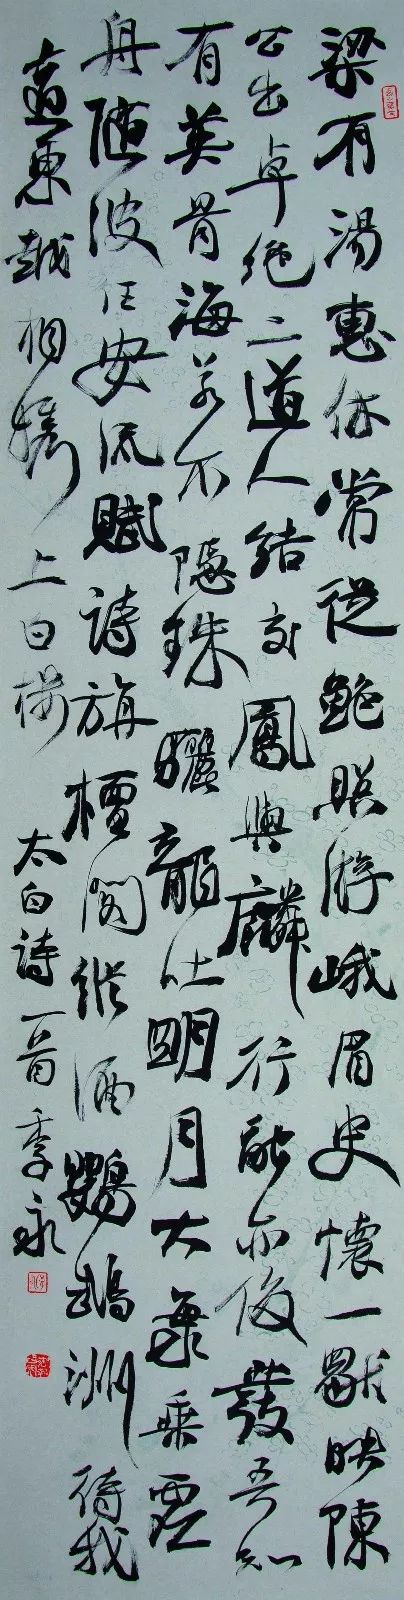 梁有湯惠休常從鮑照游峨眉史懷一獨映陳
公出卓絕二道人結交鳳與麟行融亦俊發吾知
有英骨海若不隱珠驪龍吐明月大海乘虛
舟隨波任安流賦詩旃檀閣縱酒鸚鵡洲待我
適東越相攜上白樓 太白詩一首 季永